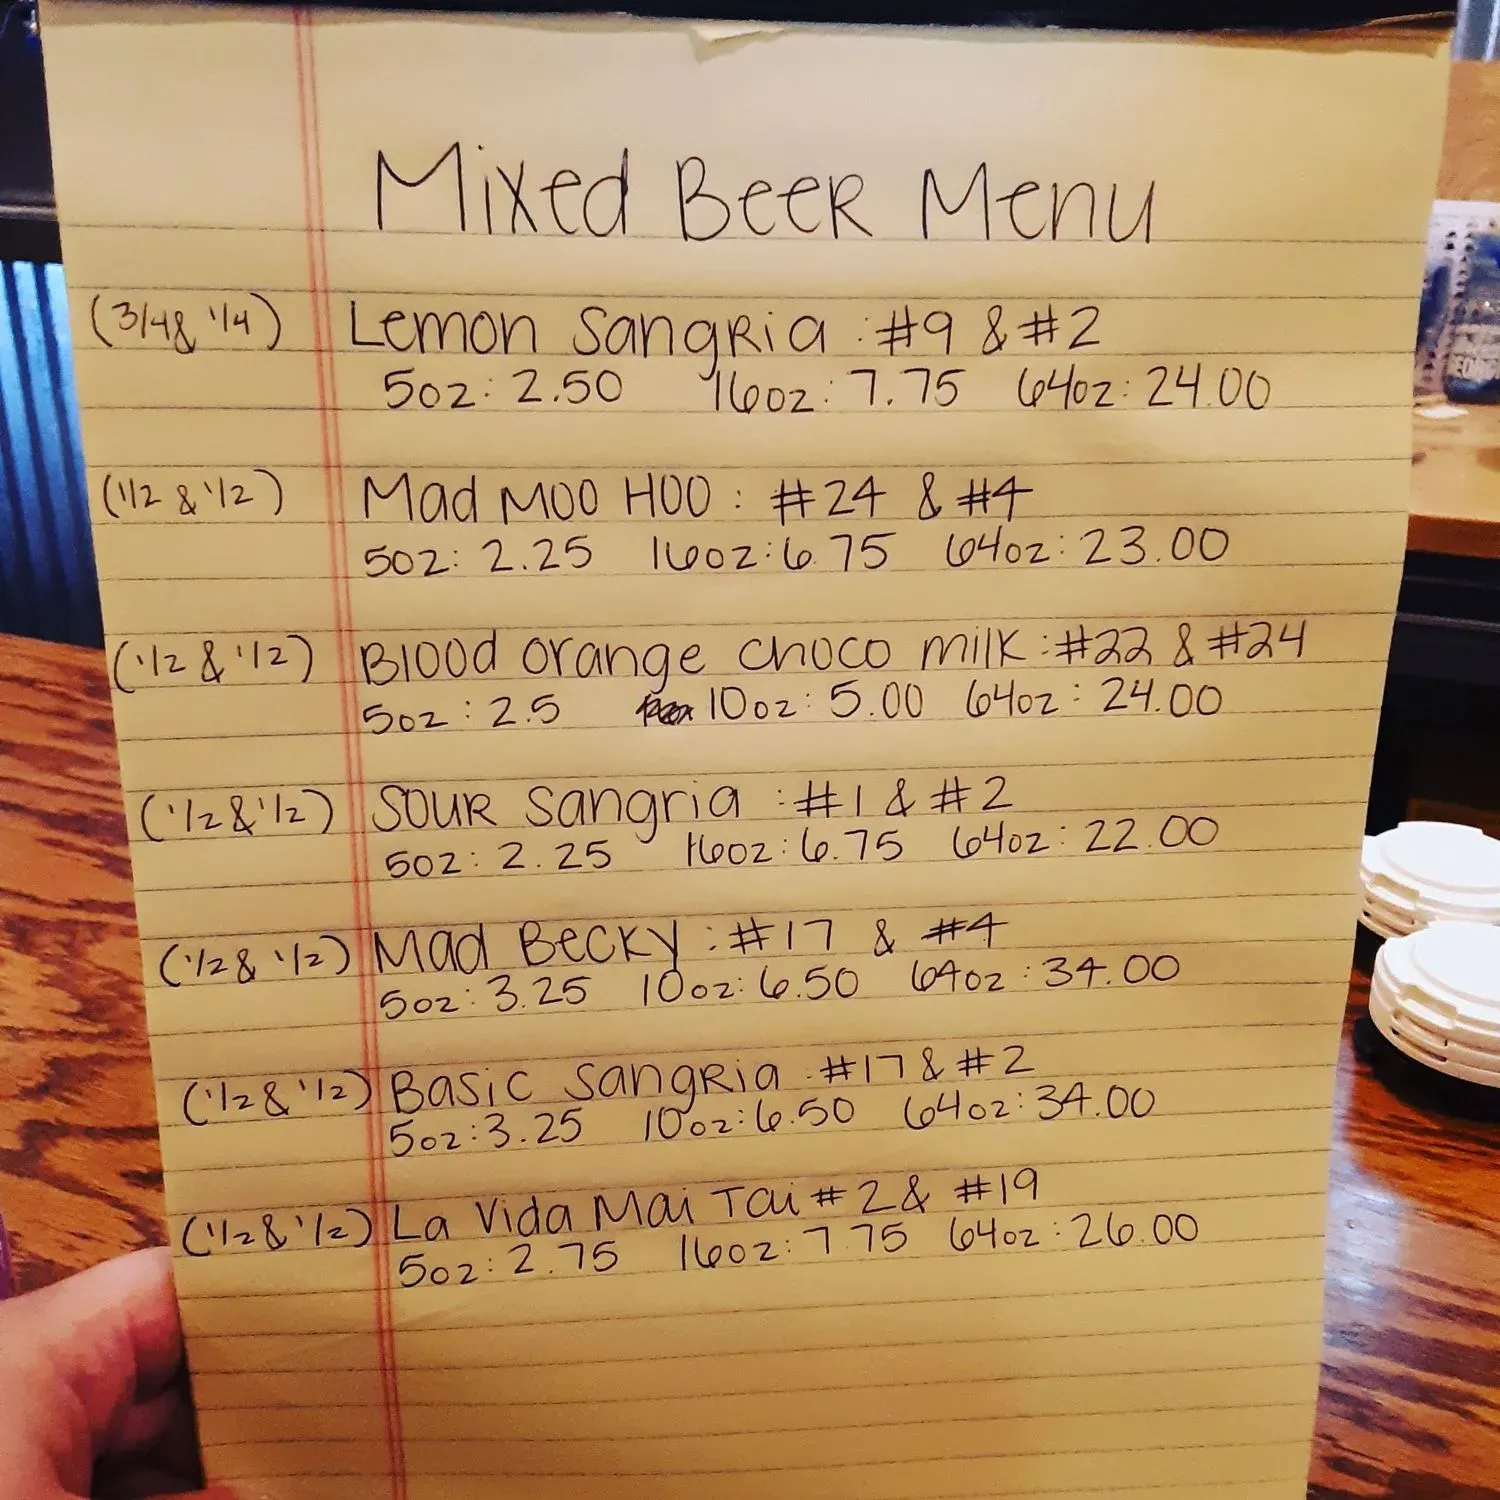 Mixed Beer Menu
(3/4 & 1/4) Lemon Sangria : #9 & #2
5oz: 2.50 16oz: 7.75 64oz: 24.00
(1/2 & 1/2) Mad Moo Hoo : #24 & #4
5oz: 2.25 16oz: 6.75 64oz: 23.00
(1/2 & 1/2) Blood orange choco milk : #22 & #24
5oz : 2.5 10oz: 5.00 64oz : 24.00
(1/2 & 1/2) Sour Sangria : #1 & #2
5oz: 2.25 16oz: 6.75 64oz: 22.00
(1/2 & 1/2) Mad Becky : #17 & #4
5oz: 3.25 10oz: 6.50 64oz : 34.00
(1/2 & 1/2) Basic Sangria : #17 & #2
5oz: 3.25 10oz: 6.50 64oz: 34.00
(1/2 & 1/2) La Vida Mai Tai #2 & #19
5oz: 2.75 16oz: 7.75 64oz : 26.00